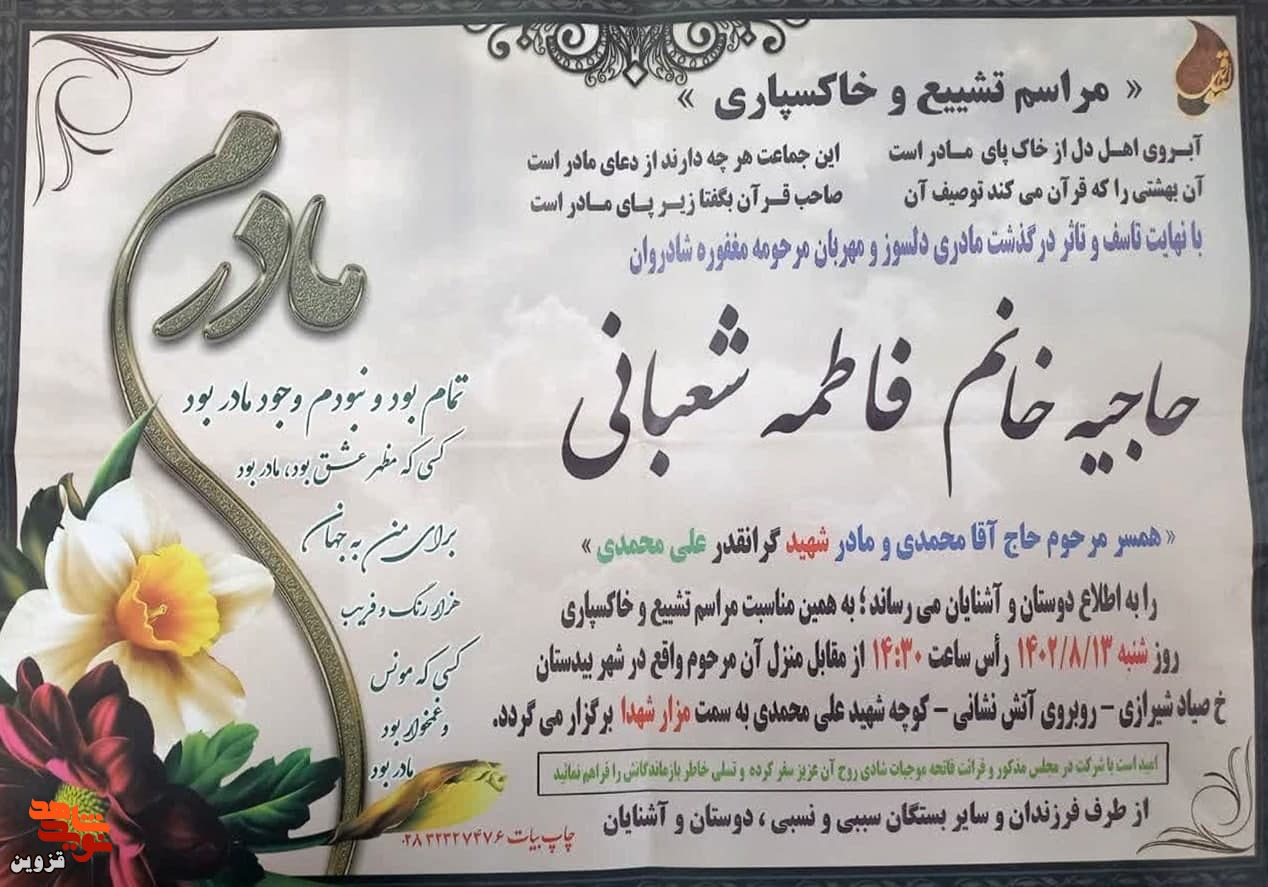 « مراسم تشییع و خاکسپاری »
آبروی اهل دل از خاک پای مادر است این جماعت هر چه دارند از دعای مادر است
آن بهشتی را که قرآن می کند توصیف آن صاحب قرآن بگفتا زیر پای مادر است
با نهایت تاسف و تاثر درگذشت مادری دلسوز و مهربان مرحومه مغفوره شادروان
حاجیه خانم فاطمه شعبانی
« همسر مرحوم حاج آقا محمدی و مادر شهید گرانقدر علی محمدی »
را به اطلاع دوستان و آشنایان می رساند ؛ به همین مناسبت مراسم تشییع و خاکسپاری
روز شنبه ۱۴۰۲/۸/۱۳ رأس ساعت ۱۴:۳۰ از مقابل منزل آن مرحوم واقع در شهر بیدستان
خ صیاد شیرازی - روبروی آتش نشانی - کوچه شهید علی محمدی به سمت مزار شهدا برگزار می گردد.
امید است با شرکت در مجلس مذکور و قرائت فاتحه موجبات شادی روح آن عزیز سفر کرده و تسلی خاطر بازماندگانش را فراهم نمائید
از طرف فرزندان و سایر بستگان سببی و نسبی ، دوستان و آشنایان
مادرم
تمام بود و نبودم وجود مادر بود
کسی که مظهر عشق بود، مادر بود
برای من به جهان
هزار رنگ و فریب
کسی که مونس
و غمخوار بود
مادر بود
چاپ بیات ۰۲۸ ۳۲۲۲۷۴۷۶
نوید شاهد
قزوین